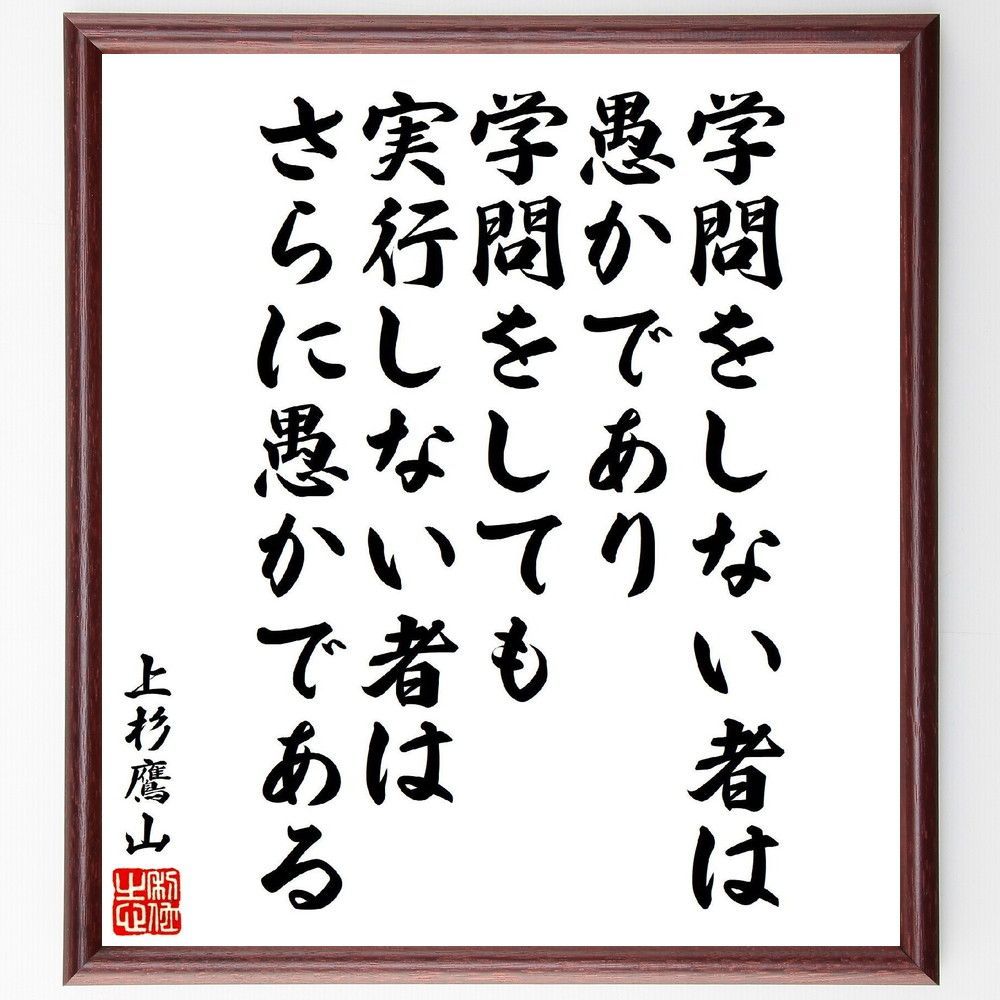 学問をしない者は
愚かであり
学問をしても
実行しない者は
さらに愚かである
上杉鷹山